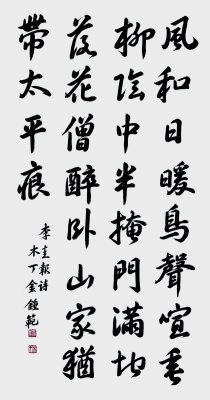 風和日暖鳥聲喧垂
柳陰中半掩門滿地
落花僧醉臥山家猶
帶太平痕
李圭報詩
木丁金鍾範